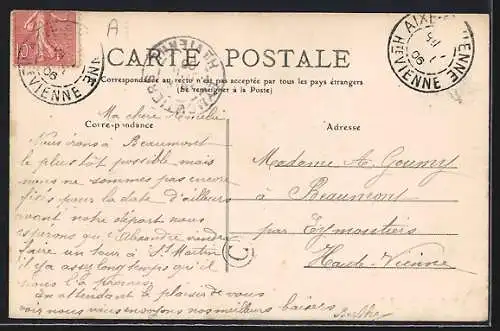 A
10
AIXE-S-VIENNE
Hte VIENNE
06
CARTE POSTALE
Correspondance au recto n'est pas acceptée par tous les pays étrangers
(Se renseigner à la Poste)
Ma chère Amélie
Correspondance
Adresse
Nous irons à Beaumont
le plus tôt possible mais
nous ne sommes pas encore
fixés pour la date d'ailleurs
avant notre départ nous
espérons que Alexandre viendra
faire un tour à St Martin
il y a assez longtemps qu'il
nous l'a promis
En attendant le plaisir de vous
voir nous vous envoyons nos meilleurs baisers
Berthe
Madame A. Goumy
à
Beaumont
par Eymoutiers
Haute-Vienne
C